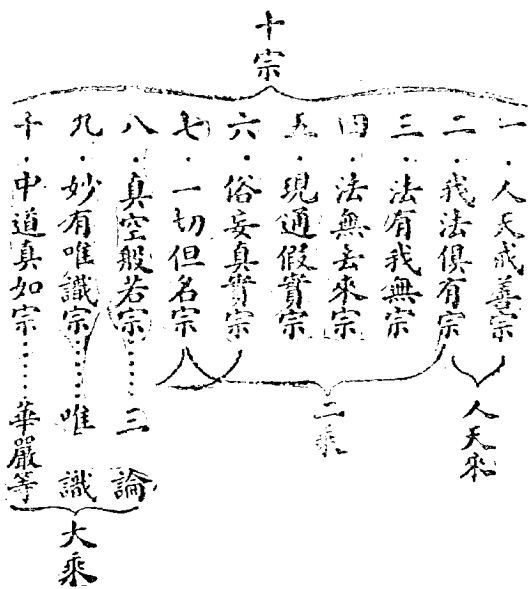 十宗
一.人天戒善宗
二.我法俱有宗
三.法有我無宗
四.法無去來宗
五.現通假實宗
六.俗妄真實宗
七.一切但名宗
八.真空般若宗……三論
九.妙有唯識宗……唯識
十.中道真如宗……華嚴等
人天乘
二乘
大乘